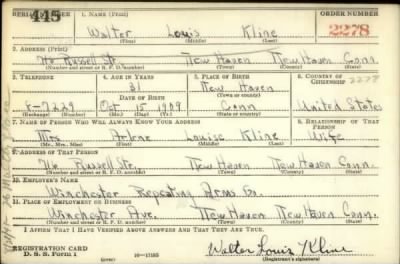 SERIAL NUMBER 1. NAME (Print) ORDER NUMBER
445 Walter Louis Kline 2278
(First) (Middle) (Last)
2. ADDRESS (Print)
Russell Str. New Haven New Haven Conn.
(Number and street or R. F. D. number) (Town) (County) (State)
3. TELEPHONE 4. AGE IN YEARS 5. PLACE OF BIRTH 6. COUNTRY OF CITIZENSHIP
31 New Haven 2278
DATE OF BIRTH (Town or county)
8-7229 Oct 15 1909 Conn United States
(Exchange) (Number) (Mo.) (Day) (Yr.) (State or country)
7. NAME OF PERSON WHO WILL ALWAYS KNOW YOUR ADDRESS 8. RELATIONSHIP OF THAT PERSON
Mrs Arlene Louise Kline Wife
(Mr., Mrs., Miss) (First) (Middle) (Last)
9. ADDRESS OF THAT PERSON
Russell Str. New Haven New Haven Conn.
(Number and street or R. F. D. number) (Town) (County) (State)
10. EMPLOYER'S NAME
Winchester Repeating Arms Co.
11. PLACE OF EMPLOYMENT OR BUSINESS
Winchester Ave. New Haven New Haven Conn.
(Number and street or R. F. D. number) (Town) (County) (State)
I AFFIRM THAT I HAVE VERIFIED ABOVE ANSWERS AND THAT THEY ARE TRUE.
REGISTRATION CARD
D. S. S. Form 1 16-17105 Walter Louis Kline
(Registrant's signature)